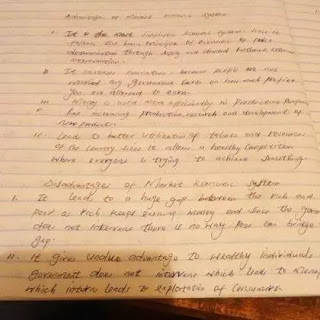 Advantages of Market Economic System
i. It is the most simplest Economic System since it
follows the basic principle of Economic to price
determination through supply and demand
determination.
ii. It increases motivation because people are not
any government on how much profit
You are allowed to earn.
iii. Money is used more efficiently in Productive Purpose
like increasing production, research and development of
new products.
iv. Lead to better utilization of talents and resources
of the country since it allow a healthy Competition
where everyone is trying to achieve something.
Disadvantages of Market Economic system
I. It leads to a huge gap between the Rich and
poor as Rich keeps earning money and since the gove
does not intervene there is no way poor can bridge
gap.
II. It gives undue advantage to wealthy individuals
Government does not intervene which leads to
which leads to exploitation of Consumers.